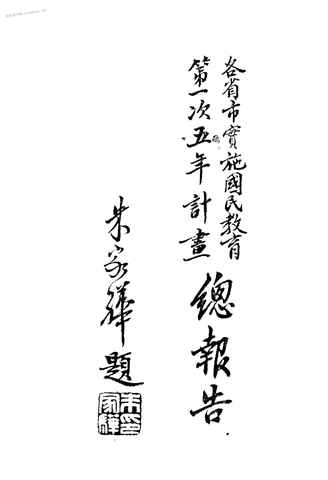 各省市實施國民教育
第一次五年計畫
總報告
朱家驊題
朱家驊印